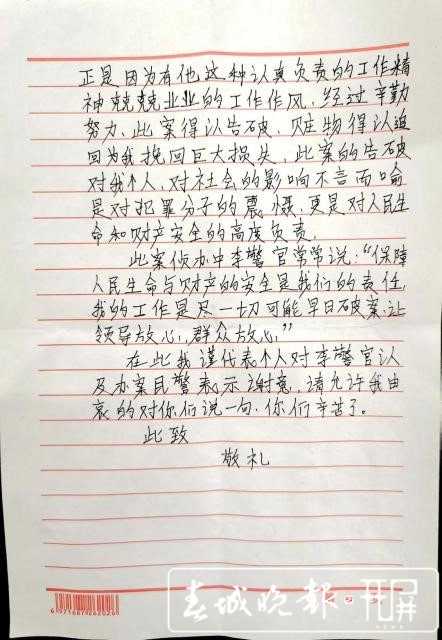 正是因为有他这种认真负责的工作精
神兢兢业业的工作作风，经过辛勤
努力、此案得认告破、赃生物得认追
回为我挽回巨大损失、此案的告破
对我个人、对社会的影响不言而喻
是对犯罪分子的震慑、更是对人民生
命和财产安全的高度负责。
此案侦办中李警官常常说："保障
人民生命与财产的安全是我们的责任,
我的工作是尽一切可能早日破案、让
领导放心、群众放心"
在此我谨代表个人对李警官认
及办案民警表示谢意、请允许我由
衷的对你们说一句、你们辛苦了。
此致
敬礼
春城晚报·开屏